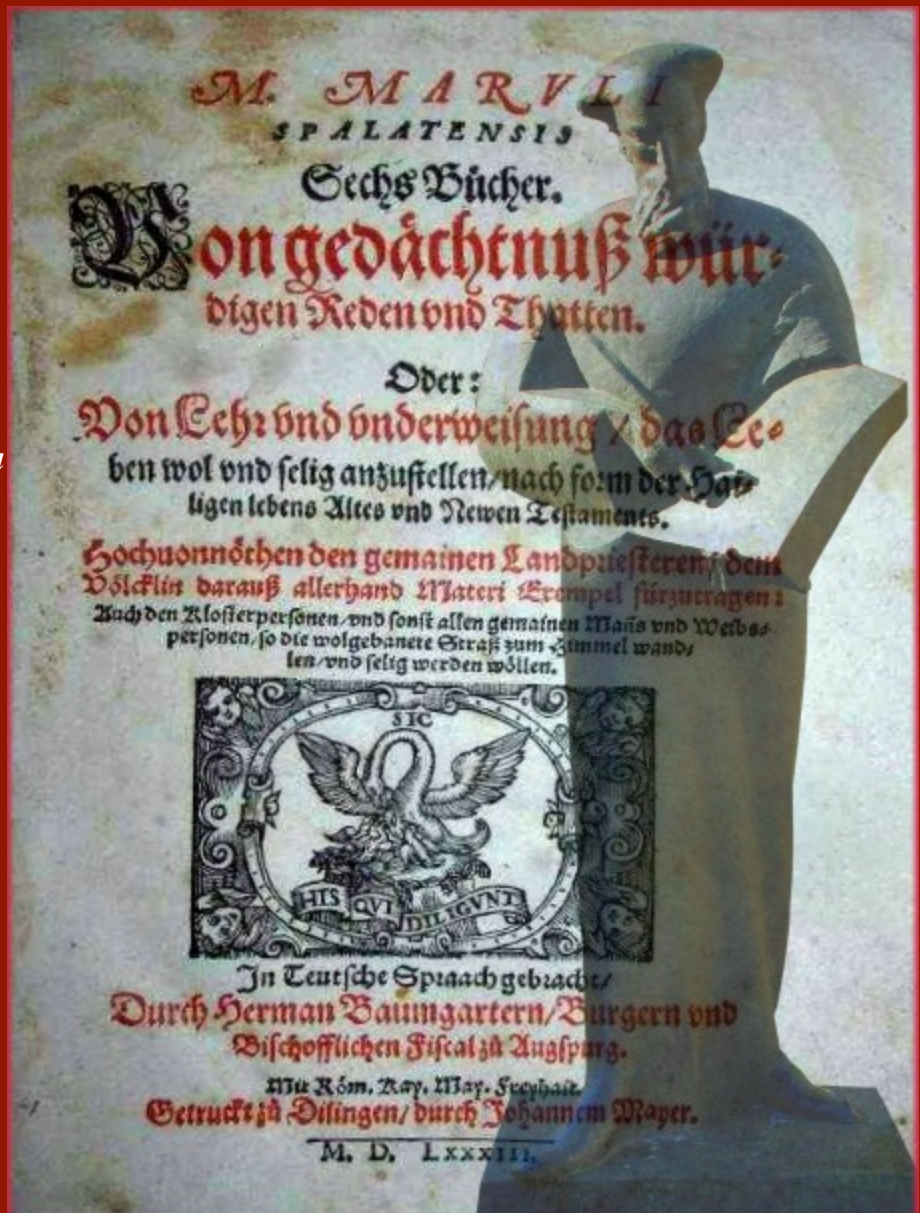 M. MARVLI
SPALATENSIS
Sechs Bücher.
Von gedächtnuß wür-
digen Reden vnd Thatten.
Oder:
Von Lehr vnd vnderweisung / das Le-
ben wol vnd selig anzustellen / nach form der Hai-
ligen lebens Altes vnd Newen Testaments.
Hochuonnöthen den gemainen Landpriesteren / dem
Völcklin darauß allerhand Materi Exempel fürzutragen:
Auch den Klosterpersonen / vnd sonst allen gemainen Mañs vnd Weibs-
personen / so die wolgebanete Straß zum Himmel wand-
len / vnd selig werden wöllen.
SIC
HIS QVI DILIGVNT
In Teutsche Spraach gebracht /
Durch Herman Baumgartern / Burgern vnd
Bischofflichen Fiscal zů Augspurg.
Mit Röm. Kay. May. Freyhait.
Getruckt zů Dilingen / durch Johannem Mayer.
M. D. LXXXIII.